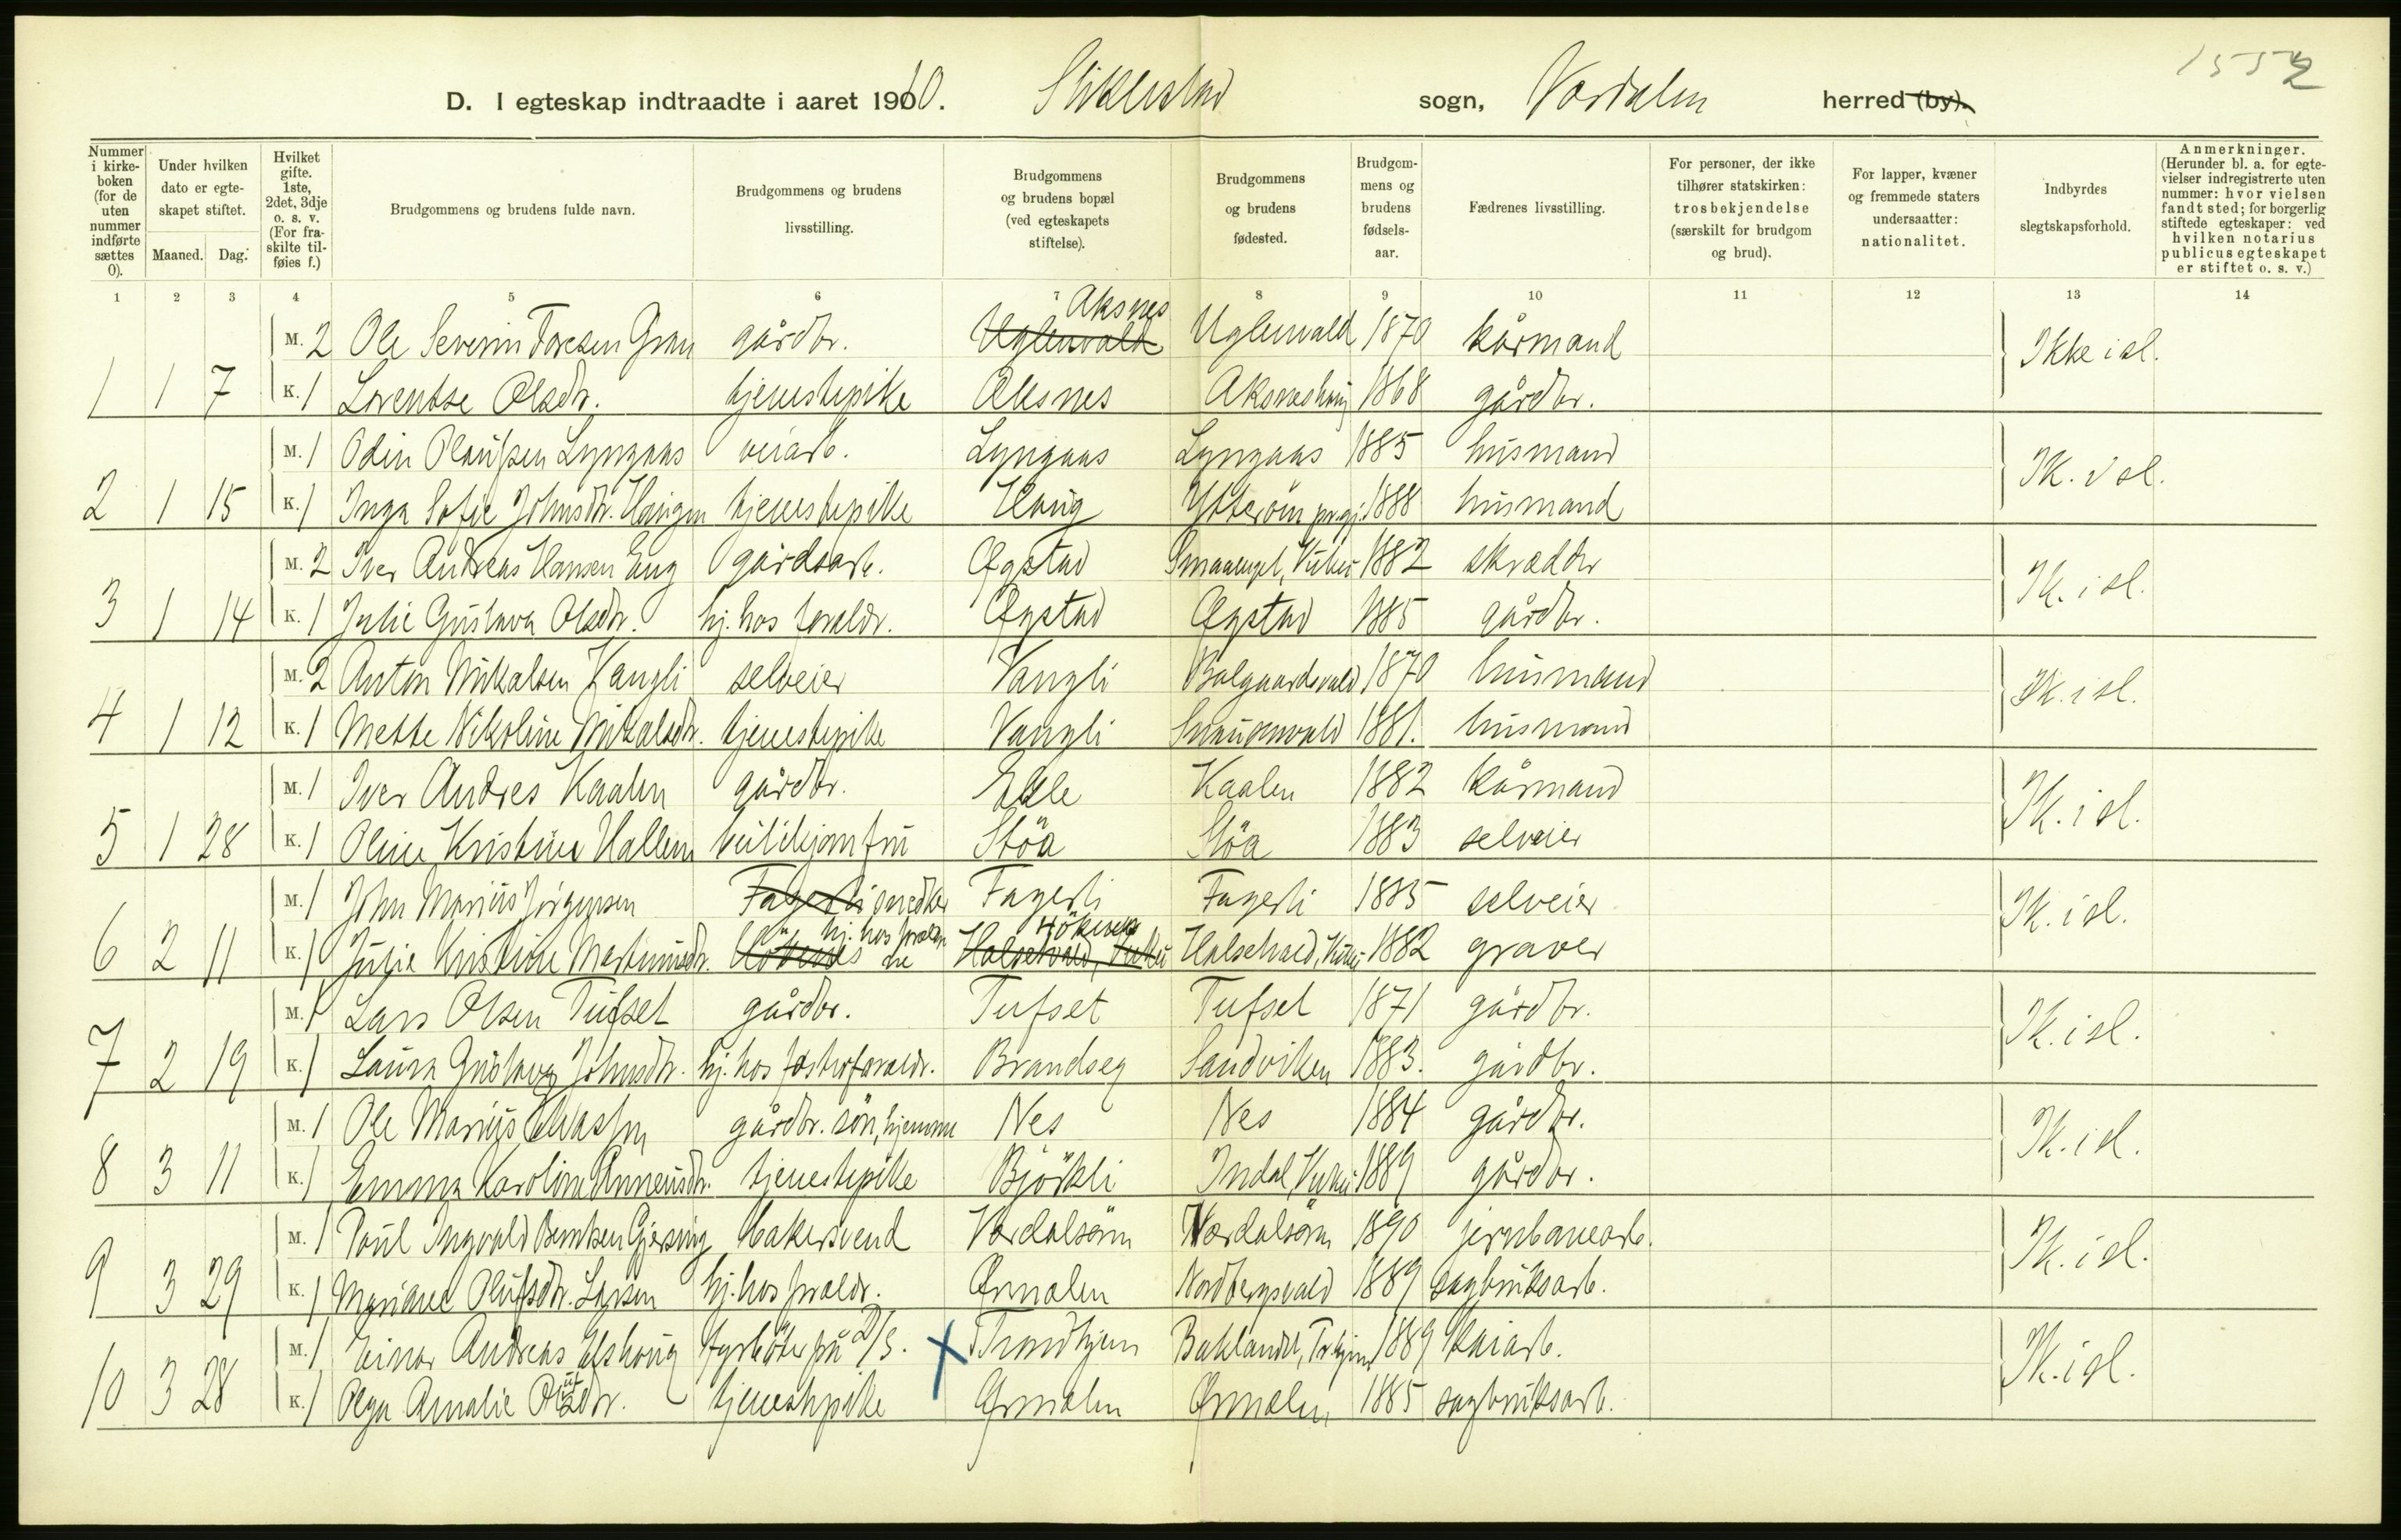 1552
D. I egteskap indtraadte i aaret 1910. Stiklestad sogn, Værdalen herred (by).
Nummer i kirke-boken (for de uten nummer indførte sættes 0).
Under hvilken dato er egte-skapet stiftet.
Maaned. Dag.
Hvilket gifte. 1ste, 2det, 3dje o. s. v. (For fra-skilte til-føies f.)
Brudgommens og brudens fulde navn.
Brudgommens og brudens livsstilling.
Brudgommens og brudens bopæl (ved egteskapets stiftelse).
Brudgommens og brudens fødested.
Brudgom-mens og brudens fødsels-aar.
Fædrenes livsstilling.
For personer, der ikke tilhører statskirken: trosbekjendelse (særskilt for brudgom og brud).
For lapper, kvæner og fremmede staters undersaatter: nationalitet.
Indbyrdes slegtskapsforhold.
Anmerkninger. (Herunder bl. a. for egte-vielser indregistrerte uten nummer: hvor vielsen fandt sted; for borgerlig stiftede egteskaper: ved hvilken notarius publicus egteskapet er stiftet o. s. v.)
1 2 3 4 5 6 7 8 9 10 11 12 13 14
Aksnes
M. 2 Ole Severin Toresen Gran gårdbr. Uglenvald Uglenvald 1870 kårmand Ikke i sl.
1 1 7 K. 1 Lorentse Olsdr. tjenestepike Aksnes Aksneshaug 1868 gårdbr.
M. 1 Odin Olaussen Lyngaas veiarb. Lyngaas Lyngaas 1885 husmand Ik. i sl.
2 1 15 K. 1 Inga Sofie Johnsdr. Haugen tjenestepike Haug Ytterøen pr.gj. 1888 husmand
M. 2 Iver Andreas Hansen Eng gårdsarb. Øgstad Vuku 1882 skrædder Ik. i sl.
3 1 14 K. 1 Julie Gustava Olsdr. hj. hos foraldr. Øgstad Øgstad 1885 gårdbr.
M. 2 Anton Mikalsen Vangli selveier Vangli Balgaardsvald 1870 husmand Ik. i sl.
4 1 12 K. 1 Mette Nikoline Mikalsdr. tjenestepike Vangli 1881. husmand
M. 1 Iver Andres Kaalen gårdbr. Ekle Kaalen 1882 kårmand Ik. i sl.
5 1 28 K. 1 Oline Kristine Hallem Stöa Stöa 1883 selveier
M. 1 John Marius Jörgensen Fagerli snedker Fagerli Fagerli 1885 selveier Ik. i sl.
hj. hos foraldr. Hökenes
6 2 11 K. 1 Julie Kristine Martinusdr. Hökenes Halsetvald, Vuku Halsetvald, Vuku 1882 graver
M. 1 Lars Olsen Tufset gårdbr. Tufset Tufset 1871 gårdbr. Ik. i sl.
7 2 19 K. 1 Laura Gustava Johnsdr. hj. hos fosterforaldr. Brandseg Sandviken 1883. gårdbr.
M. 1 Ole Marius gårdbr. sön, hjemme Nes Nes 1884 gårdbr. Ik. i sl.
8 3 11 K. 1 Emma Karoline Anneusdr. tjenestepike Björkli Indal, Vuku 1889 gårdbr.
M. 1 Paul Ingvald Berntsen Gjersing bakersvend Værdalsören Værdalsören 1890 jernbanearb. Ik. i sl.
9 3 29 K. 1 Mariane Olufsdr. Larsen hj. hos foraldr. Ørmelen Nordbergsvald 1889 sagbruksarb.
M. 1 Einar Andreas Elshaug fyrböter på D/S. X Trondhjem Baklandet, Tr.hjem 1889 kaiarb. Ik. i sl.
10 3 28 K. 1 Olga Amalie Olufsdr. tjenestepike Ørmelen Ørmelen 1885 sagbruksarb.